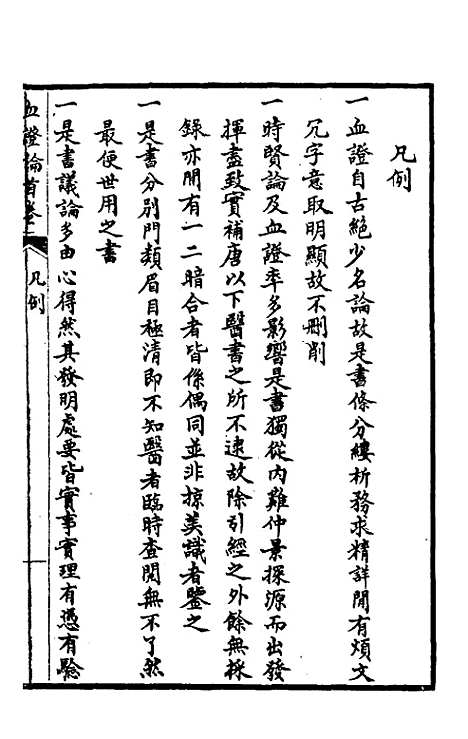 凡例
一血證自古絶少名論故是書條分縷析務求精詳間有煩文
冗字意取明顯故不刪削
一時賢論及血證率多影響是書獨從內難仲景探源而出發
揮盡致實補唐以下醫書之所不逮故除引經之外餘無採
錄亦間有一二暗合者皆係偶同並非掠美識者鑒之
一是書分別門類眉目極清即不知醫者臨時查閱無不了然
最便世用之書
一是書議論多由心得然其發明處要皆實事實理有憑有驗
血證論首卷 凡例
一